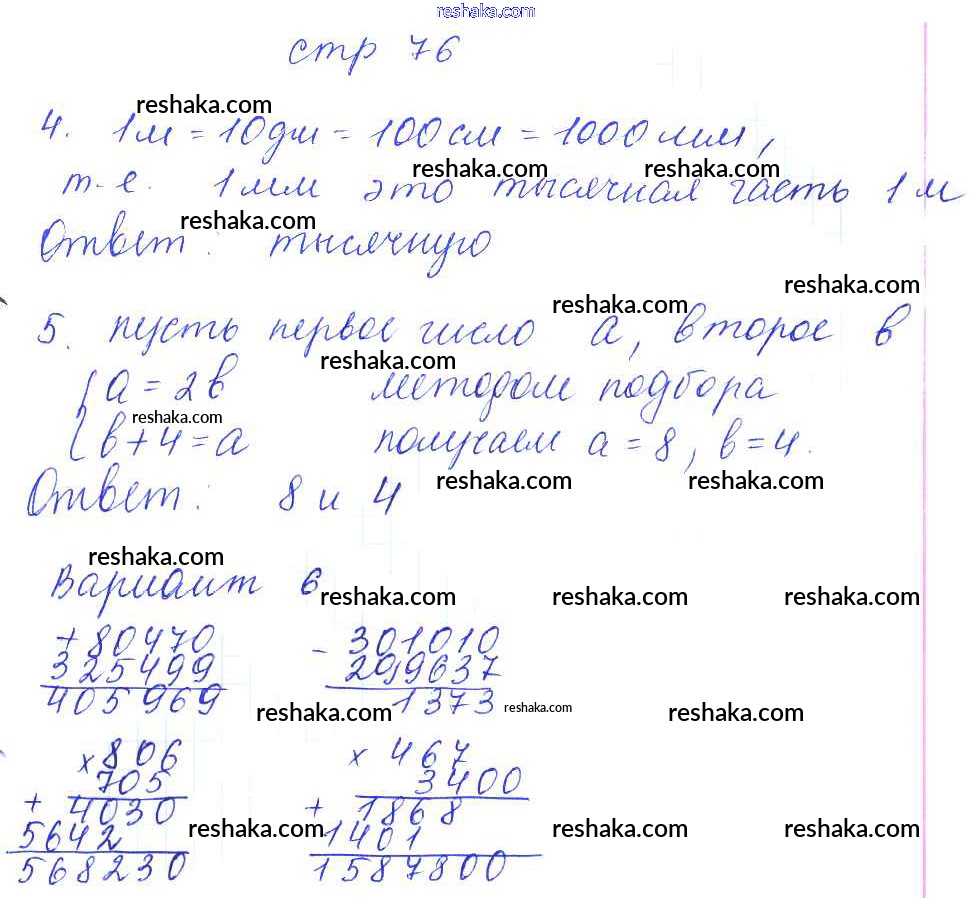 reshaka.com
стр 76
reshaka.com
4. 1м = 10дм = 100см = 1000мм,
reshaka.com reshaka.com
т.е. 1мм это тысячная часть 1м
reshaka.com
Ответ: тысячную
reshaka.com
reshaka.com
5. пусть первое число a, второе в
reshaka.com
a = 2в методом подбора
reshaka.com
в + 4 = a получаем a = 8, в = 4.
reshaka.com reshaka.com
Ответ: 8 и 4
reshaka.com
Вариант 6
reshaka.com reshaka.com reshaka.com
+ 80470 - 301010
325499 299637
405969 1373
reshaka.com reshaka.com reshaka.com
x 806 x 467
705 3400
+ 4030 + 1868
5642 1401
reshaka.com reshaka.com reshaka.com
568230 1587800